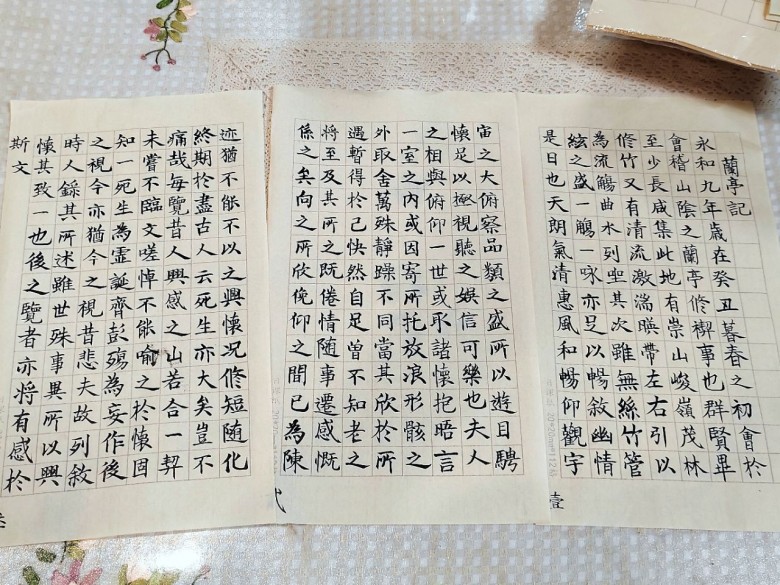 蘭亭記
永和九年歲在癸丑暮春之初會於
會稽山陰之蘭亭修禊事也群賢畢
至少長咸集此地有崇山峻嶺茂林
修竹又有清流激湍暎帶左右引以
為流觴曲水列坐其次雖無絲竹管
絃之盛一觴一咏亦足以暢敘幽情
是日也天朗氣清惠風和暢仰觀宇
壹
宙之大俯察品類之盛所以遊目騁
懷足以極視聽之娛信可樂也夫人
之相與俯仰一世或取諸懷抱晤言
一室之內或因寄所托放浪形骸之
外取舍萬殊靜躁不同當其欣於所
遇暫得於己快然自足曾不知老之
將至及其所之既倦情隨事遷感慨
係之矣向之所欣俛仰之間已為陳
迹猶不能不以之興懷况修短随化
終期於盡古人云死生亦大矣豈不
痛哉每覽昔人興感之山若合一契
未嘗不臨文嗟悼不能喻之於懷因
知一死生為虛誕齊彭殤為妄作後
之視今亦猶今之視昔悲夫故列敘
時人錄其所述雖世殊事異所以興
懷其致一也後之覽者亦將有感於
斯文